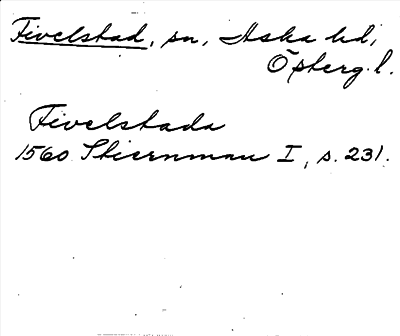 Fivelstad, sn, Aska hd,
Östergl.
Fivelstada
1560 Stiernman I, s. 231.